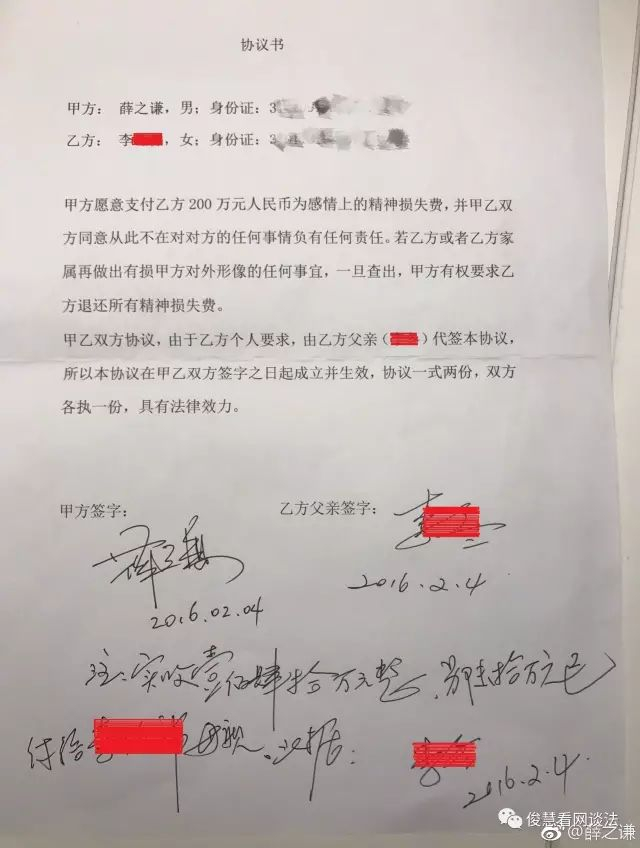 协议书
甲方： 薛之谦，男；身份证：3
乙方： 李 ，女；身份证：3
甲方愿意支付乙方 200 万元人民币为感情上的精神损失费，并甲乙双
方同意从此不在对对方的任何事情负有任何责任。若乙方或者乙方家
属再做出有损甲方对外形像的任何事宜，一旦查出，甲方有权要求乙
方退还所有精神损失费。
甲乙双方协议，由于乙方个人要求，由乙方父亲（ ）代签本协议，
所以本协议在甲乙双方签字之日起成立并生效，协议一式两份，双方
各执一份，具有法律效力。
甲方签字： 乙方父亲签字：
薛之谦 李
2016.02.04 2016.2.4
注：实收壹佰肆拾万元整， 拾万元已
付给李 母亲。 据： 李
2016.2.4
俊慧看网谈法
@薛之谦